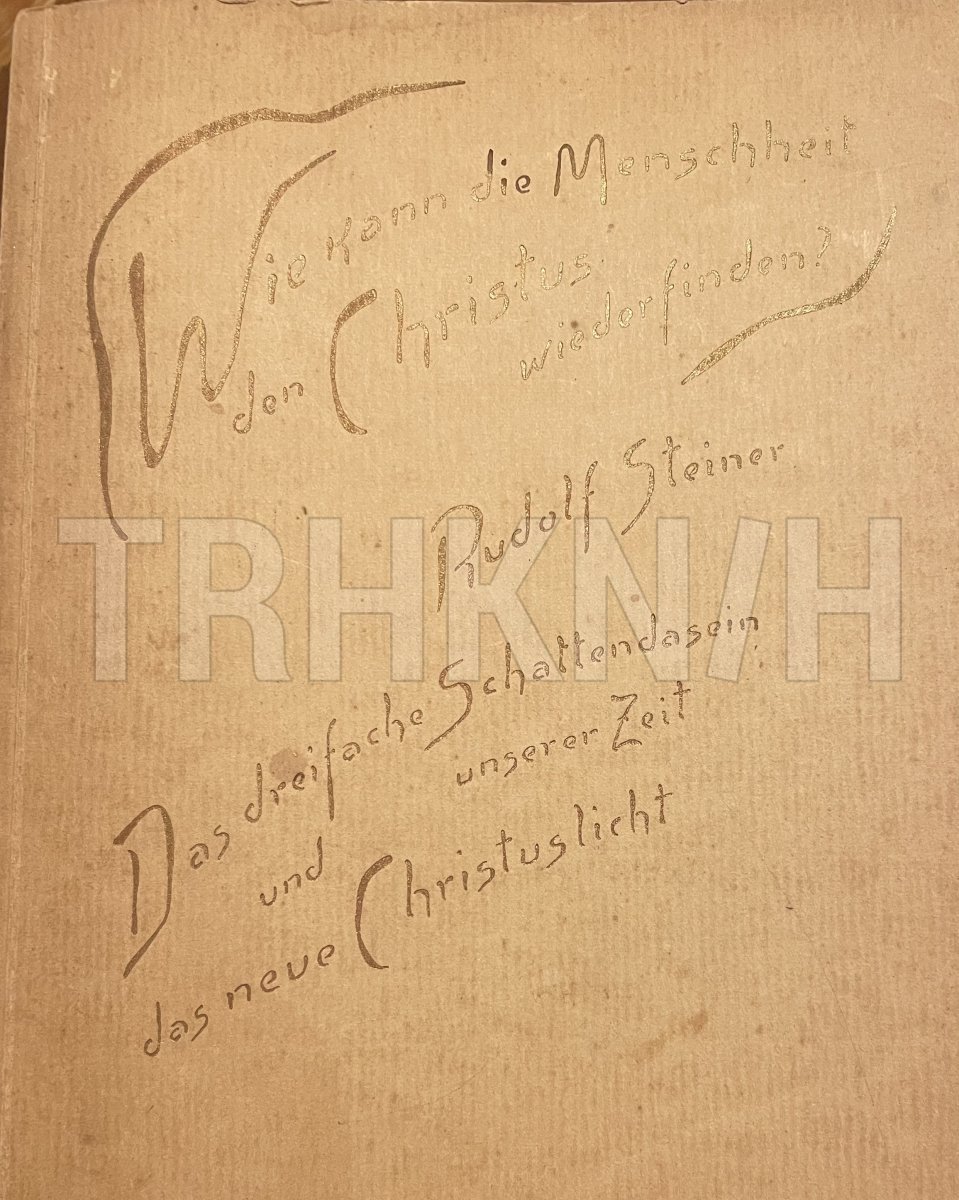 Wie kann die Menschheit
den Christus
wiederfinden?
Rudolf Steiner
TRHKN/H
Das dreifache Schattendasein
unserer Zeit
und
das neue Christuslicht